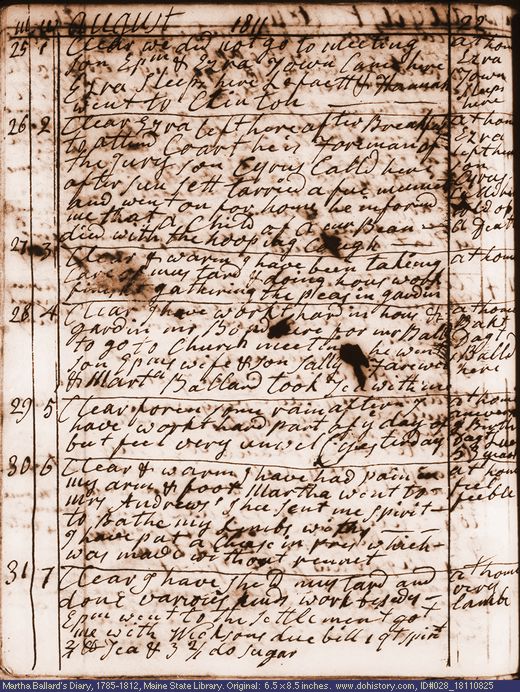 m w August 1811 22
25 1 Clear we did not go to meeting at home
son Ephm & Ezra Town Came here Ezra Town
Ezra Sleeps here & Hannah sleeps
went to Clinton here
26 2 Clear Ezra left here after Breakfast at home
to attend Court he is Foreman of Ezra
the Jury son Cyrus Calld here left here
after sun sett tarried a few minutes son Cyrus
and went on for home he inform calld here
me that a Child of Bean told of
died with the hooping Cough a Death
27 3 Clear & warm I have been taking at home
care of mustard & doing hous work
finisht gathering the peas in gardin
28 4 Clear I have workt hard in hous & at home
gardin mr Ballard
to go to Church meeting he went
son Ephms wife & son Sally Farewell Ballard here
& Martha Ballard took Tea with me
29 5 Clear forenn some rain aftern I at home
have workt hard part of ye day
but feel very unwel
30 6 Clear & warm I have had pain in at home
my arm & foot Martha went to feeble
mrs Andrews shee sent me spirit
to Bathe my limbs with
I have put a Chees in press which
was made without rennet
31 7 Clear I have shel'd mustard and at home
done various kinds work besides very
Ephm went to the settlement got lambe
me with Jacksons due bill 1 qt spirit
¼ lb Tea & 3 ½ do sugar
Martha Ballard's Diary, 1785-1812, Maine State Library. Original: 6.5 x 8.5 inches. www.dohistory.com, ID#028_18110825